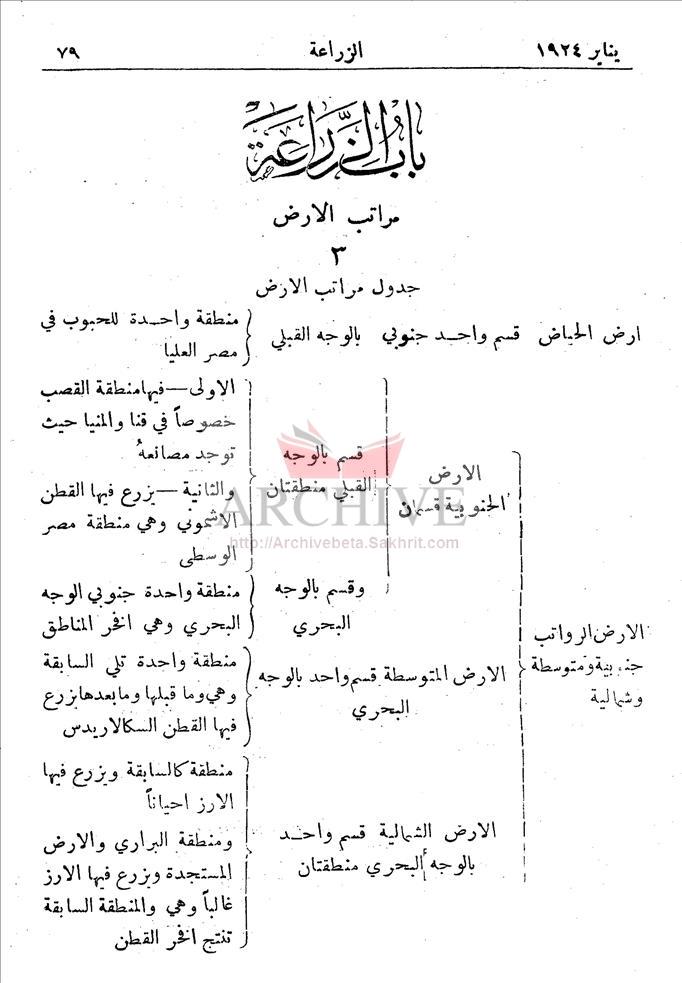 يناير ١٩٢٤ الزراعة ٧٩
باب الزراعة
مراتب الارض
٣
جدول مراتب الارض
ارض الحياض قسم واحد جنوبي بالوجه القبلي
منطقة واحدة للحبوب في
مصر العليا
الارض الرواتب
جنوبية ومتوسطة
وشمالية
الارض
الجنوبية قسمان
قسم بالوجه
القبلي منطقتان
الاولى—فيها منطقة القصب
خصوصاً في قنا والمنيا حيث
توجد مصانعهُ
والثانية—يزرع فيها القطن
الاشموني وهي منطقة مصر
الوسطى
وقسم بالوجه
البحري
منطقة واحدة جنوبي الوجه
البحري وهي افخر المناطق
الارض المتوسطة قسم واحد بالوجه
البحري
منطقة واحدة تلي السابقة
وهي وما قبلها وما بعدها يزرع
فيها القطن السكالاريدس
الارض الشمالية قسم واحد
بالوجه البحري منطقتان
منطقة كالسابقة ويزرع فيها
الارز احياناً
ومنطقة البراري والارض
المستجدة ويزرع فيها الارز
غالباً وهي والمنطقة السابقة
تنتج افخر القطن
ARCHIVE
http://Archivebeta.Sakhrit.com